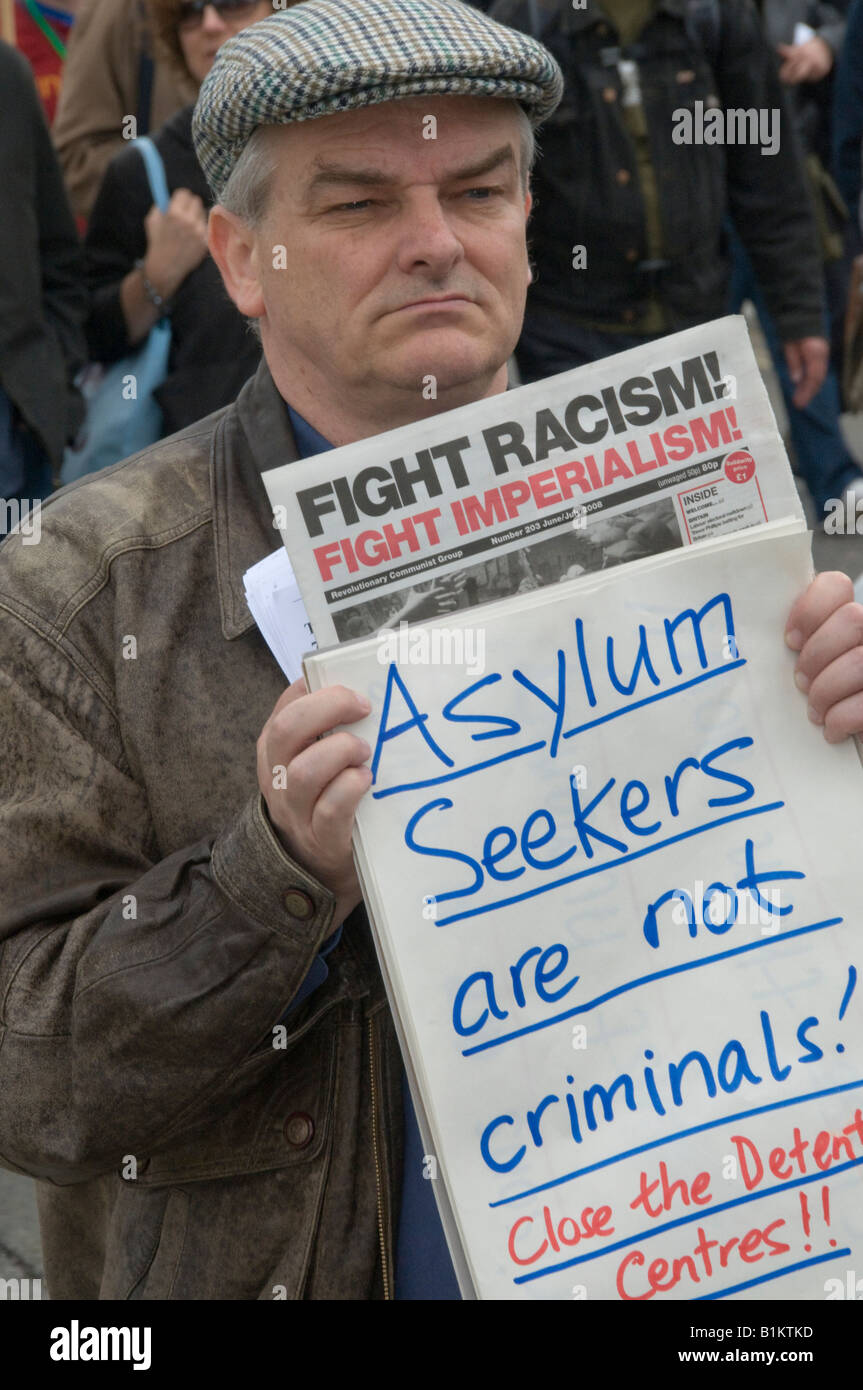 FIGHT RACISM!
FIGHT IMPERIALISM!
Revolutionary Communist Group Number 203 June/July 2008 (unwaged 50p) 80p
Solidarity price £1
INSIDE
WELCOME...
BRITAIN
Asylum
Seekers
are not
criminals!
Close the Detent
Centres!!
alamy
B1KTKD
www.alamy.com